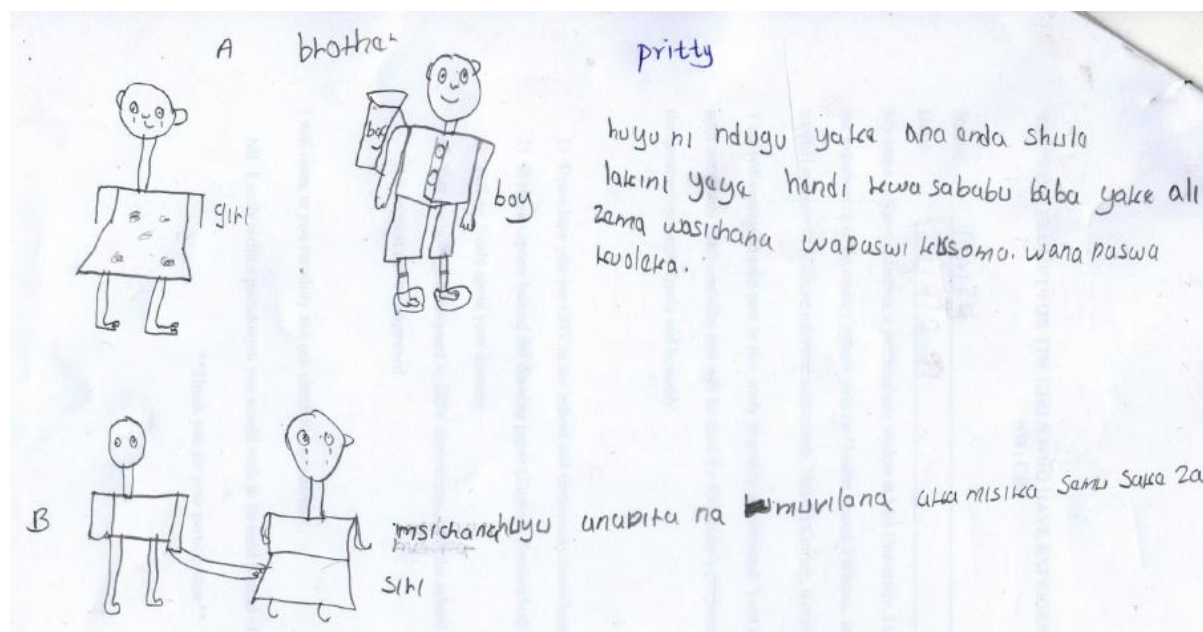 A brother
pritty
girl
bag
boy
huyu ni ndugu yake ana enda shule
lakini yeye hendi kwa sababu baba yake ali
zema wasichana wapaswi kusoma. wana paswa
kuoleka.
B
msichanahuyu anapita na muvilana aka misika Samu Saka za
sirl